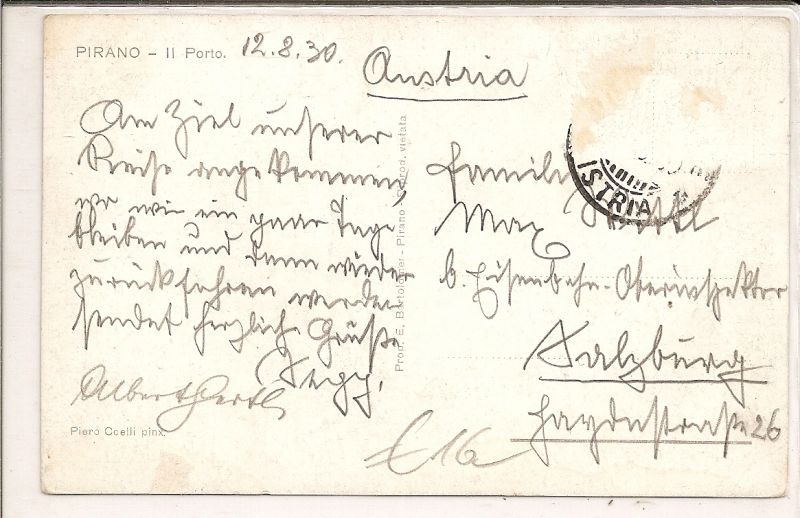 PIRANO – Il Porto.
12.8.30.
Austria
Am Ziel unserer
Reise angekommen,
wo wir ein paar Tage
bleiben und dann wieder
zurückfahren werden
sendet herzliche Grüße
Albert
Piero Coelli pinx.
Prop. E. Bartolomer - Pirano - Riprod. vietata
ISTRIA
Familie
Max
b. Eisenbahn-Oberinspektor
Salzburg
Haydnstraße 26
£ 16